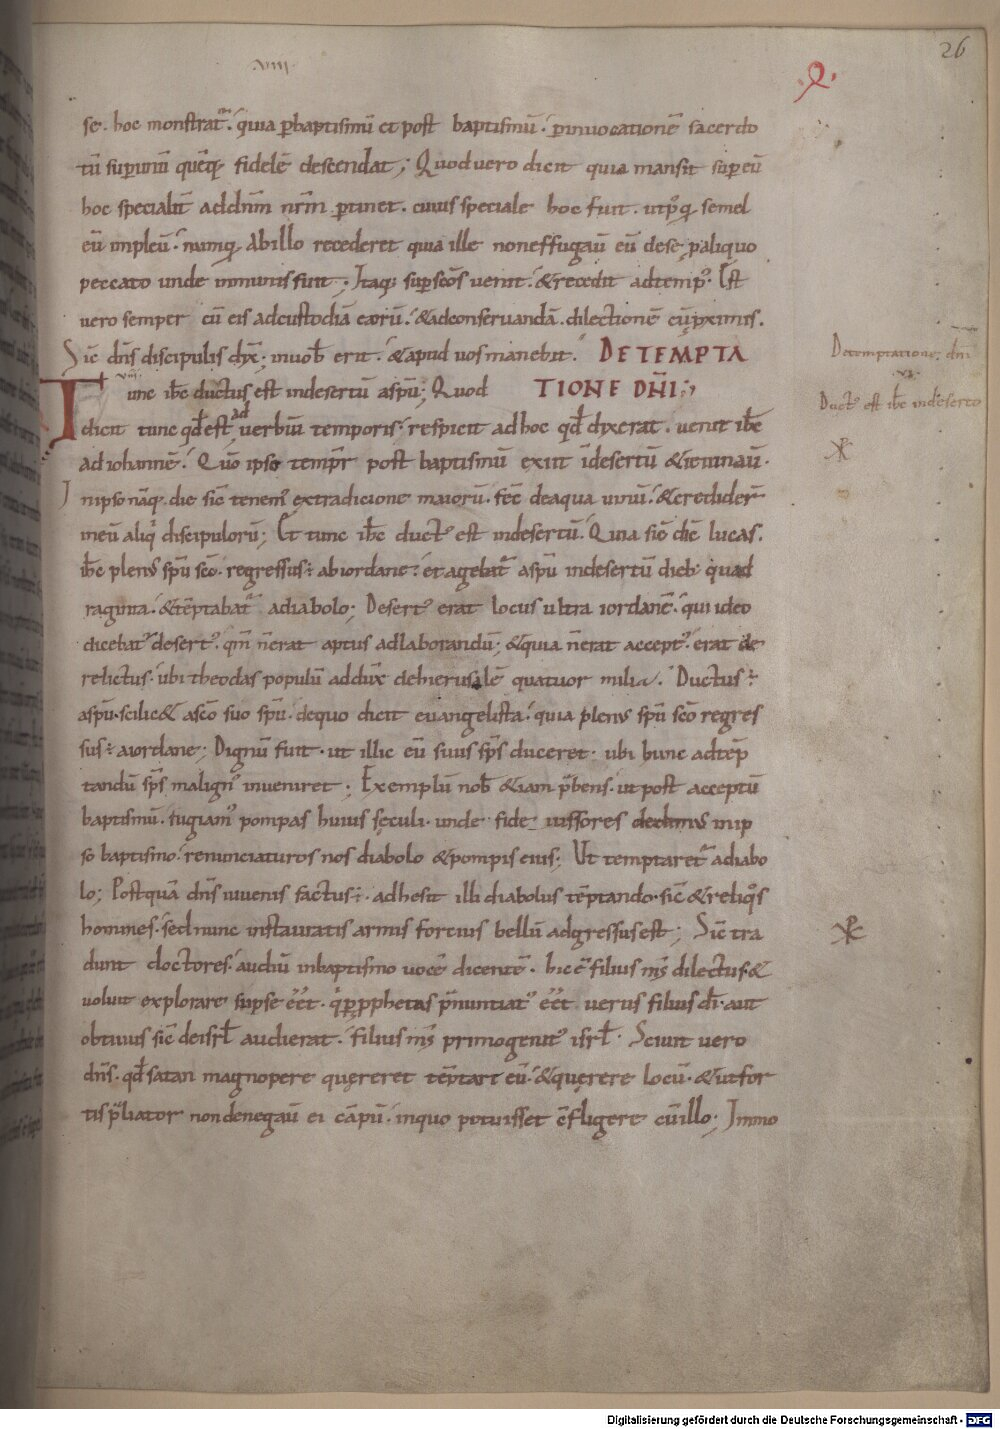 26
.viiii.
se. hoc monstrat᷑. quia p̱baptismū et post baptismū. p̱inuocationē sacerdo
tū sup̱unūquēq; fidelē descendat; Quod uero dicit quia mansit sup̱ eū
hoc specialit̄ ad dn̄m nr̄m p̱tinet. cuius speciale hoc fuit. ut semel
eū impleu̅. numq̄ ab illo recederet quia ille non effugau̅ eū de se p̱ aliquo
peccato unde inmunis fuit; Itaq; sup̱ sc̄os uenit. & recedit ad temp᷒. Est
uero semper cū eis ad custodiā eorū. & ad conseruandā dilectionē
Sic̄ dn̄s discipulis dix̄; in uob̄ erit. & apud uos manebit. DE TEMPTA
Tunc ih̄c ductus est in desertū a sp̄u; Quod TIONE DN̄I;
De temptatione dn̄i
.vi.
Duct᷒ est ih̄c in deserto
dicit tunc qd̄ est ad uerbiū temporis. respicit ad hoc qd̄ dixerat. uenit ih̄c
ad iohannē. Quo ipso temp̱r post baptismū exiit ī desertū & ieiunau̅.
In ipso nāq; die sic̄ tenem᷒ ex tradicione maiorū. fec̄ de aqua uinū. & credidert̄
in eū aliq̇ discipulorū; Et tunc ih̄c duct᷒ est in desertū. Quia sic̄ dic̄ lucas.
ih̄c plenus sp̄u sc̄o. regressus÷ ab iordane. et agebat᷑ a sp̄u in desertū dieb; quad
raginta. & tēptabat᷑ a diabolo; Desert᷒ erat locus ultra iordanē. qui ideo
dicebat᷑ desert᷒. qm̄ n̄ erat aptus ad laborandū; & quia n̄ erat accept᷒. erat de
relictus. ubi theodas populū addux̄ de hierusalē quatuor milia. Ductus÷
a sp̄u. scilic& a sc̄o suo sp̄u. de quo dicit euangelista. quia plenus sp̄u sc̄o regres
sus÷ a iordane; Dignū fuit. ut illic eū suus sp̄s duceret. ubi hunc ad tēp
tandū sp̄s malign᷒ inueniret; Exemplū nob̄ & iam p̄bens. ut post acceptū
baptismū. fugiam᷒ pompas huius sęculi. unde fide iussores in ip
so baptismo. renunciaturos nos diabolo & pompis eius; Ut temptaret᷑ a diabo
lo; Postquā dn̄s iuuenis factus÷. adhesit illi diabolus tēptando. sic̄ & reliq̊s
homines. sed nunc instauratis armis fortius bellū adgressus est; Sic̄ tra
dunt doctores. audiu̅ in baptismo uocē dicentē. hic ē filius ms̄ dilectus. &
uoluit explorare si ip̱se ēēt. q̇ p̱ pphetas p̄nuntiat᷒ ēēt uerus filius dī. aut
obtiuus sic̄ de isrl̄ audierat. filius ms̄ primogenit᷒ isrl̄. Sciuit uero
dn̄s. qd̄ satan magnopere quęreret tēptare eū. & quęrere locū. & ut for
tis p̄liator non denegau̅ ei cāpū. in quo potuisset cōfligere cū illo; Immo
Digitalisierung gefördert durch die Deutsche Forschungsgemeinschaft - DFG